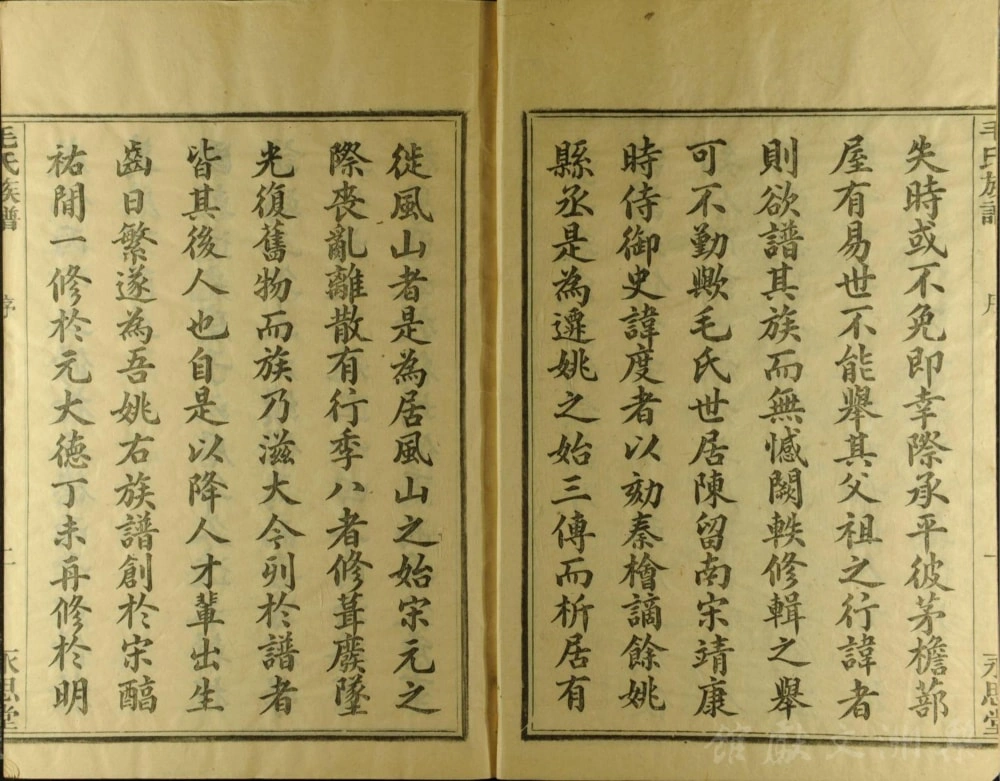 失時或不免即幸際承平彼茅檐蔀
屋有易世不能舉其父祖之行諱者
則欲譜其族而無憾闕軼修輯之舉
可不勤歟毛氏世居陳留南宋靖康
時侍御史諱度者以劾秦檜謫餘姚
縣丞是為遷姚之始三傳而析居有
徙風山者是為居風山之始宋元之
際喪亂離散有行季八者修葺廢墜
光復舊物而族乃滋大今列於譜者
皆其後人也自是以降人才輩出生
齒日繁遂為吾姚右族譜創於宋酯
祐間一修於元大德丁未再修於明
毛氏族譜
序
永思堂